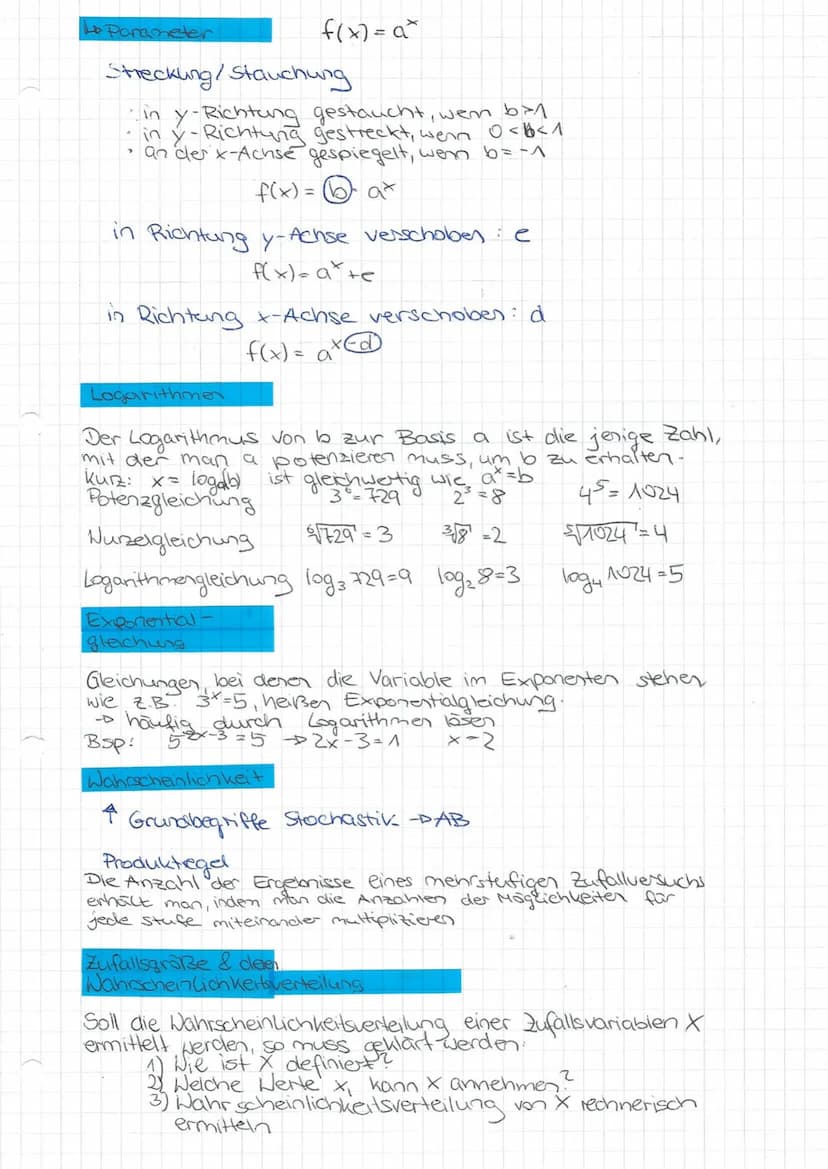 ↳ Parameter f(x) = aˣ
Streckung/Stauchung
· in y-Richtung gestaucht, wenn b>1
· in y-Richtung gestreckt, wenn 0<b<1
· an der x-Achse gespiegelt, wenn b=-1
f(x) = b · aˣ
in Richtung y-Achse verschoben: e
f(x) = aˣ + e
in Richtung x-Achse verschoben: d
f(x) = aˣ⁻ᵈ
Logarithmen
Der Logarithmus von b zur Basis a ist die jenige Zahl,
mit der man a potenzieren muss, um b zu erhalten.
Kurz: x = logₐ(b) ist gleichwertig wie aˣ=b
Potenzgleichung 3⁶=729 2³=8 4⁵=1024
Wurzelgleichung ⁶√729=3 ³√8=2 ⁵√1024=4
Logarithmengleichung log₃ 729=9 log₂ 8=3 log₄ 1024=5
Exponential-
gleichung
Gleichungen, bei denen die Variable im Exponenten stehen
wie z.B. 3ˣ=5, heißen Exponentialgleichung.
→ häufig durch Logarithmen lösen
Bsp: 5²ˣ⁻³=5 → 2x-3=1 x=2
Wahrscheinlichkeit
↑ Grundbegriffe Stochastik → AB
Produktregel
Die Anzahl der Ergebnisse eines mehrstufigen Zufallversuchs
erhält man, indem man die Anzahlen der Möglichkeiten für
jede Stufe miteinander multiplizieren
Zufallsgröße & deen
Wahrscheinlichkeitsverteilung
Soll die Wahrscheinlichkeitsverteilung einer Zufallsvariablen X
ermittelt werden, so muss geklärt werden:
1) Wie ist X definiert?
2) Welche Werte xᵢ kann X annehmen?
3) Wahrscheinlichkeitsverteilung von X rechnerisch
ermitteln